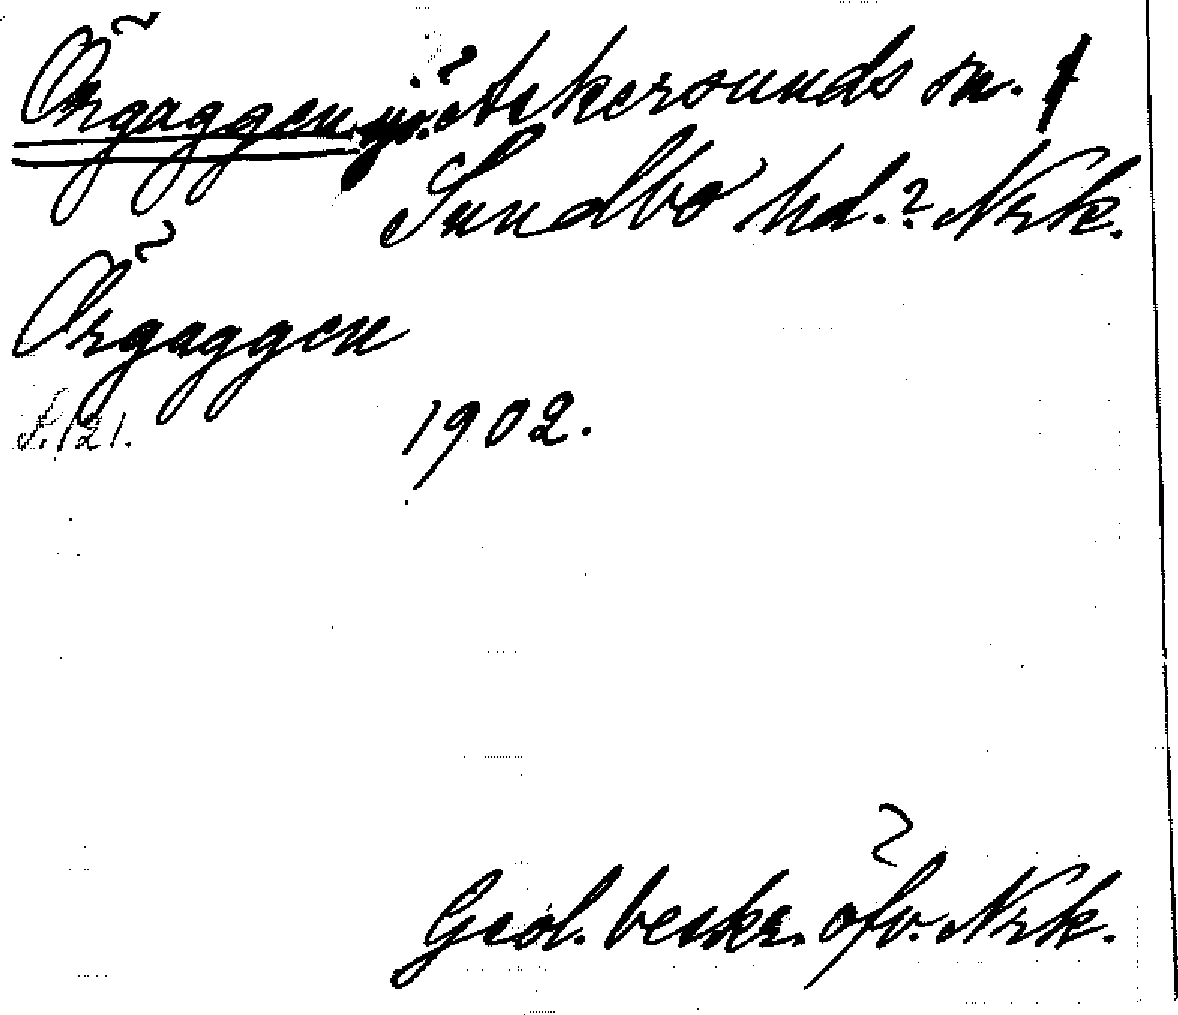 Örgaggen, sjö? Askersunds sn.
Sundbo hd.? Nrk.
Örgaggen
S. 121. 1902.
Geol. beskr. öfv. Nrk.